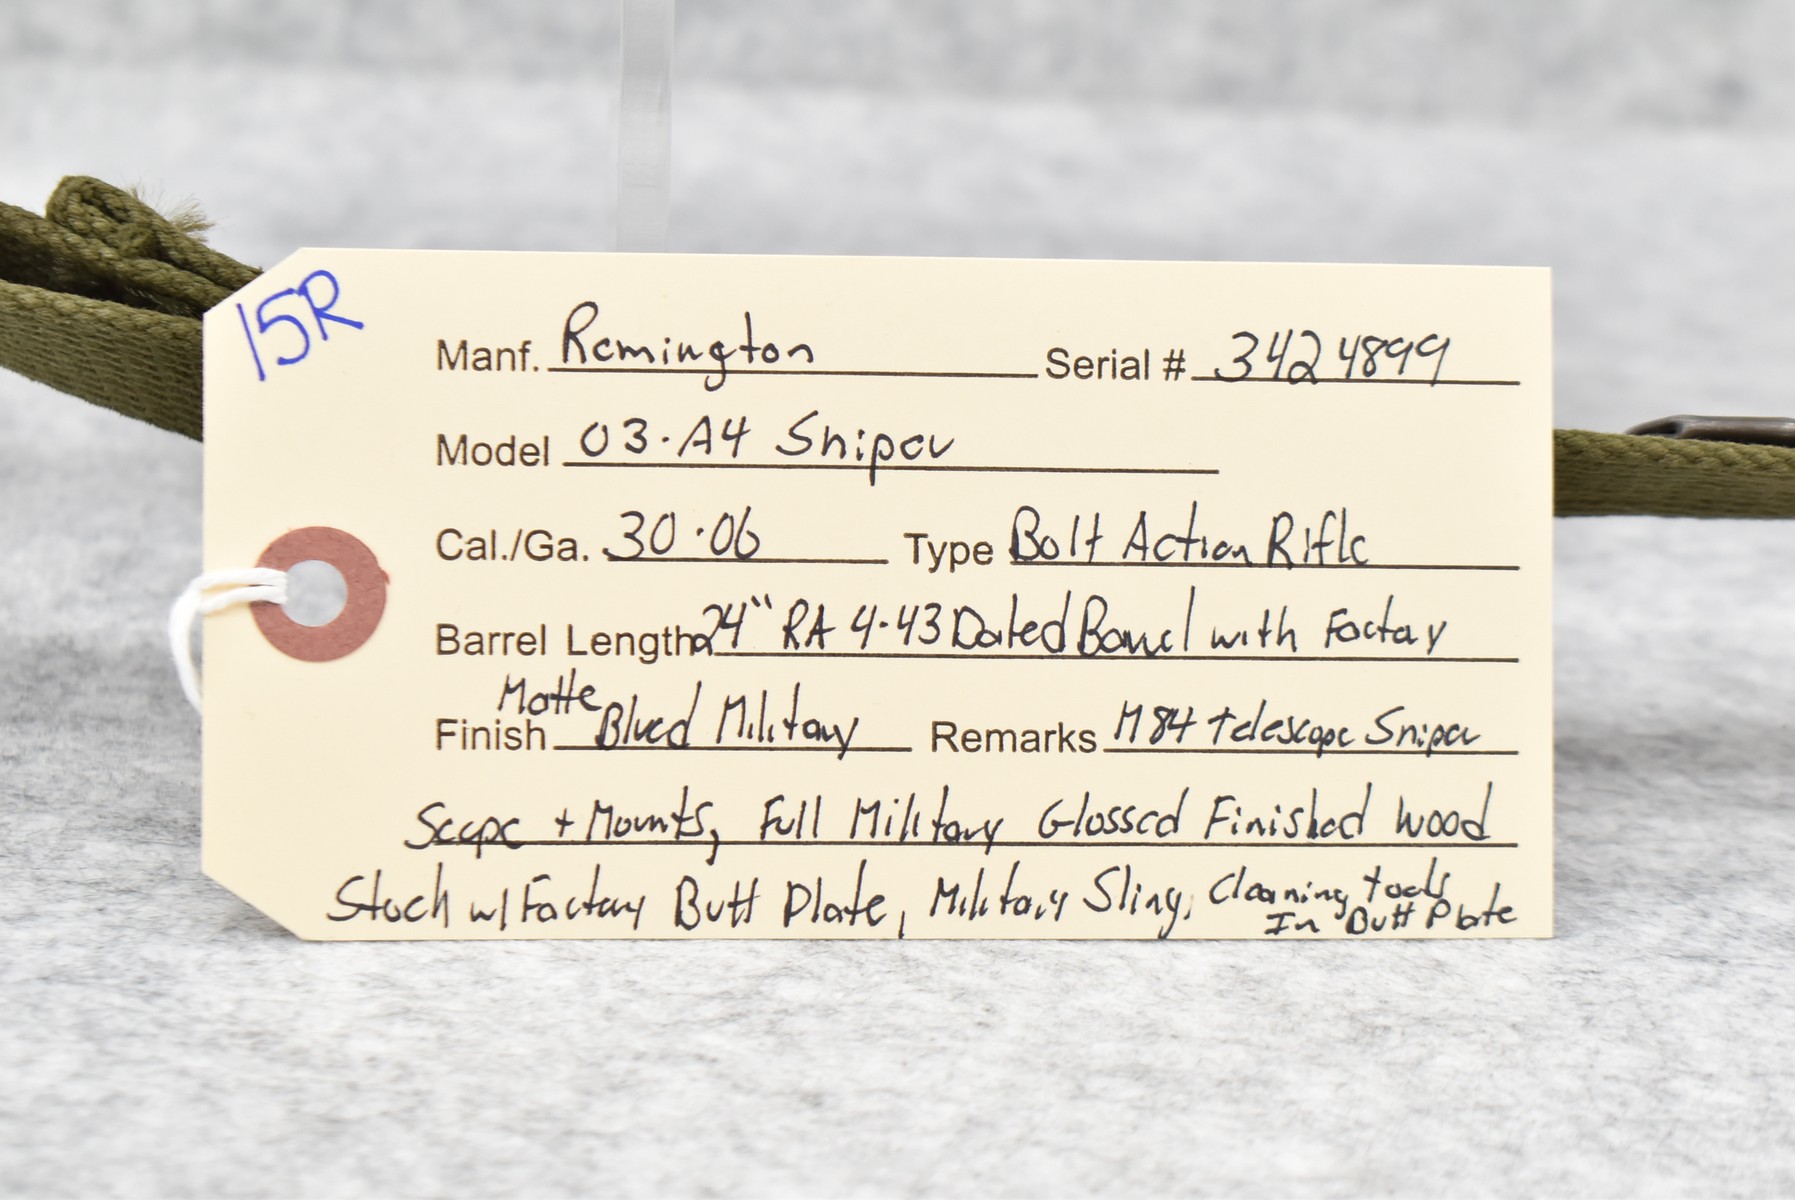 15R
Manf. Remington Serial # 3424899
Model 03-A4 Sniper
Cal./Ga. 30-06 Type Bolt Action Rifle
Barrel Length 24" RA 4-43 Dated Barrel with Factory
Finish Matte Blued Military Remarks M84 telescope Sniper
Scope + Mounts, Full Military Glossed Finished Wood
Stock w/ Factory Butt Plate, Military Sling, Cleaning tools
In Butt Plate